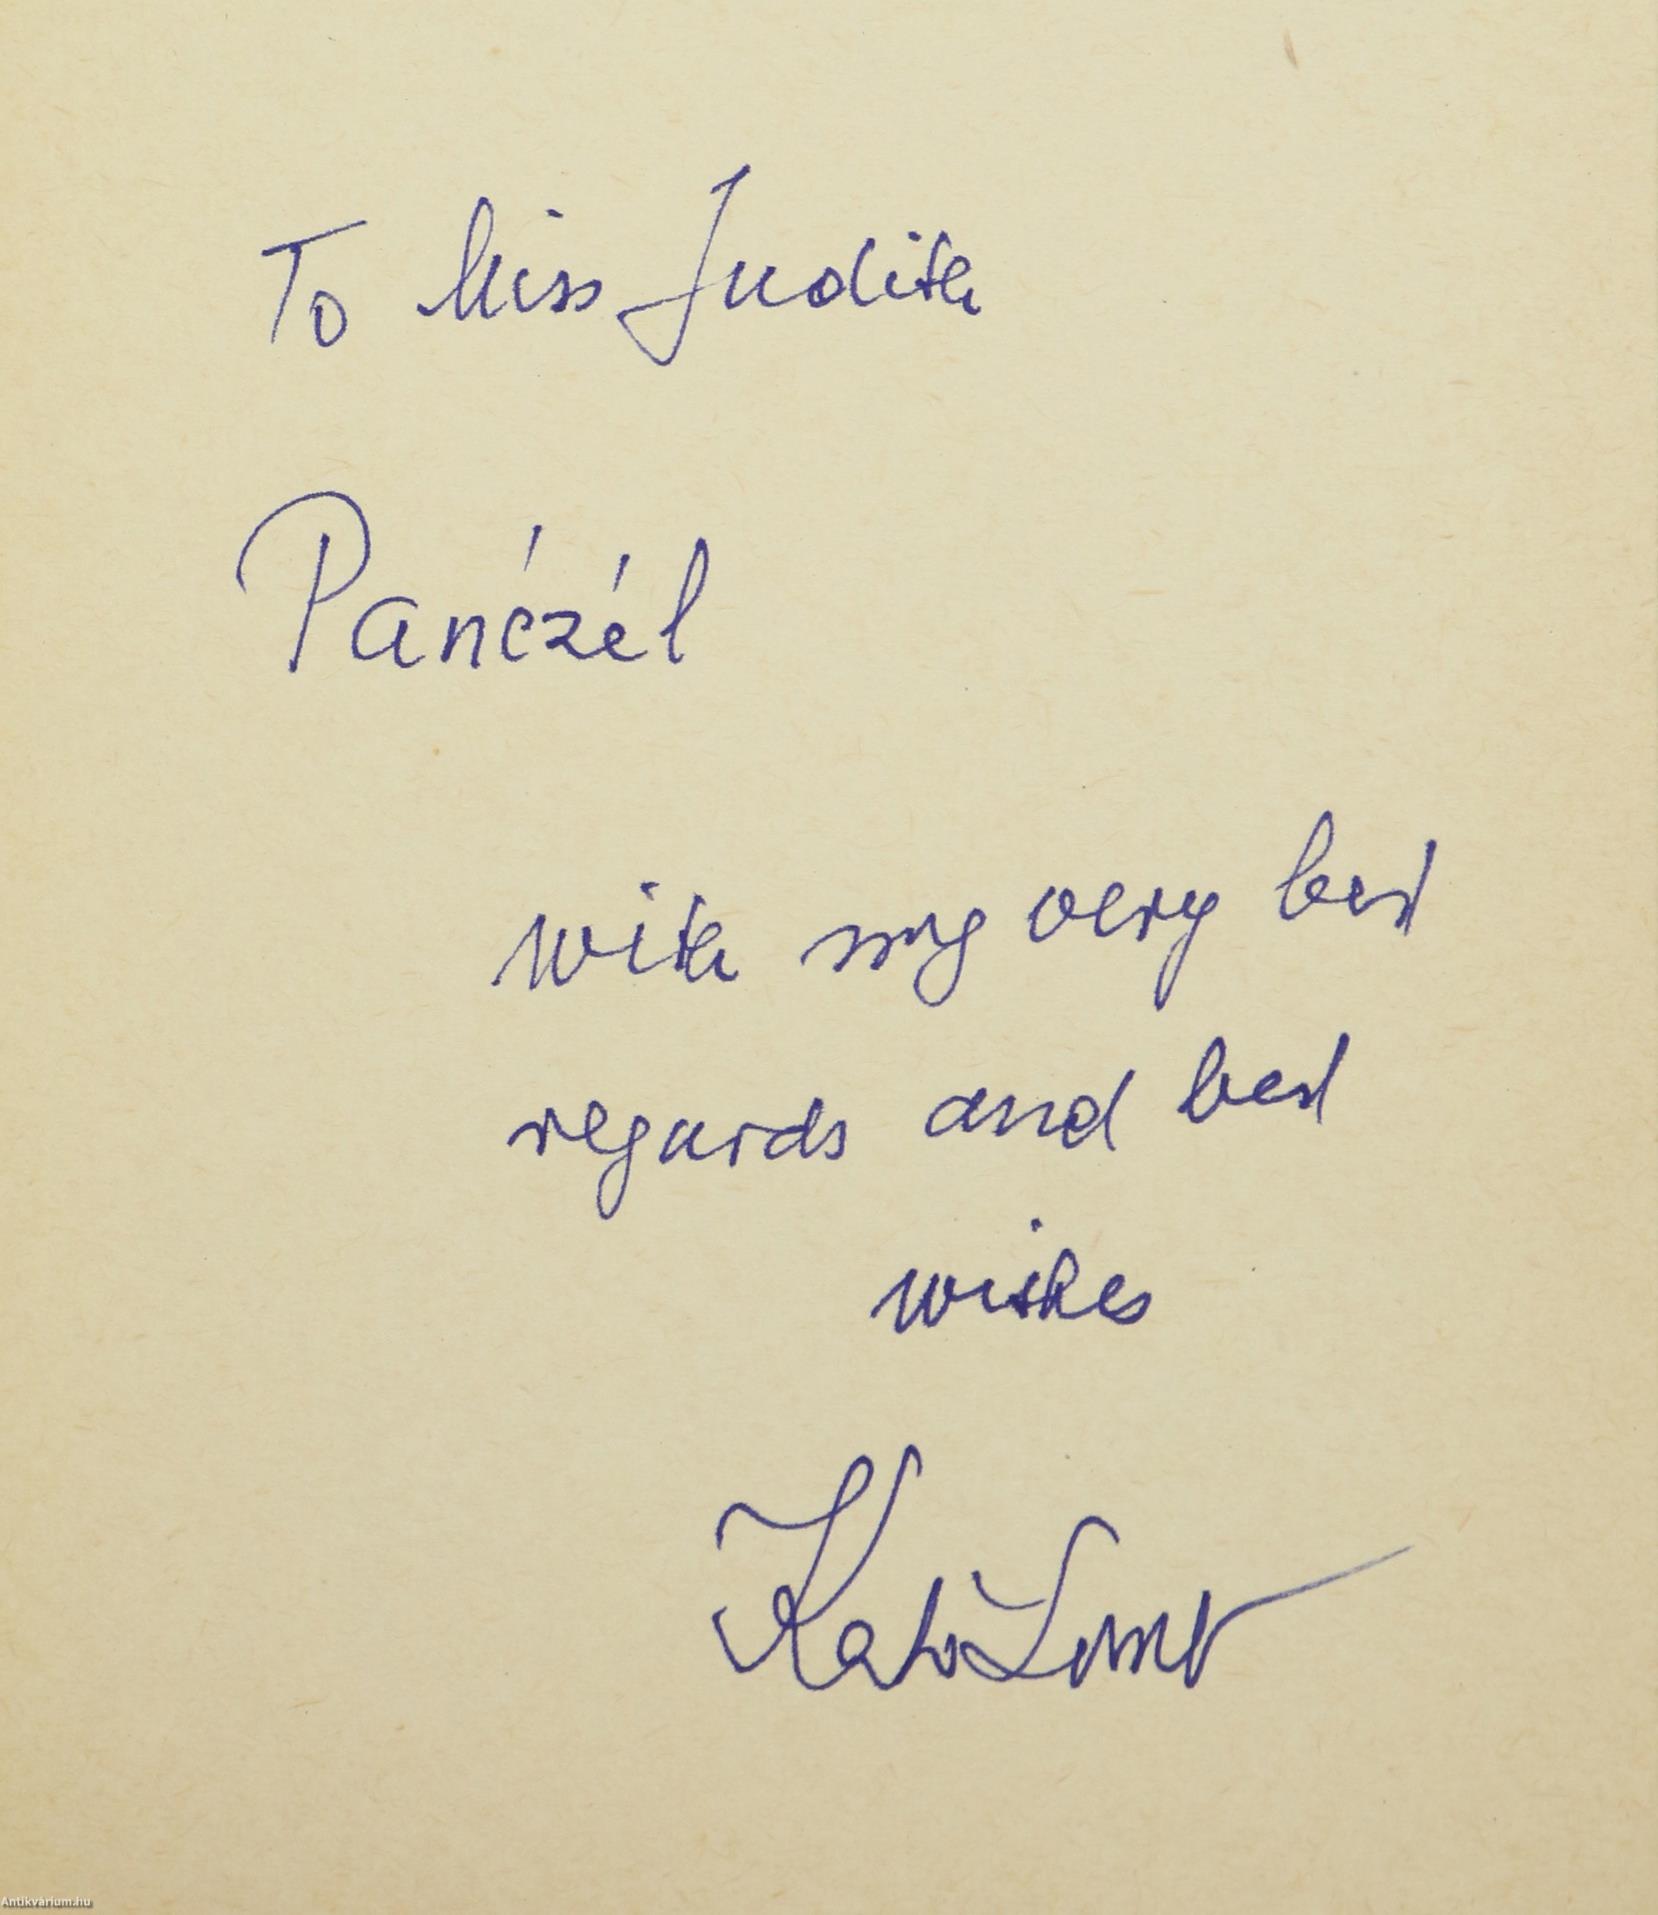 To Miss Judith
Panćzél
with my very best
regards and best
wishes
Kató Lomb
Antikvárium.hu